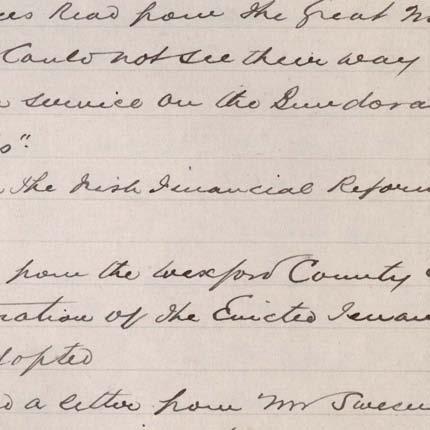 ces Read from the Great
Could not see their way
service on the Bundora
s":
the Irish Financial Reform
from the Wexford County
ration of the Evicted Tenan
dopted
d a letter from Mr Sween